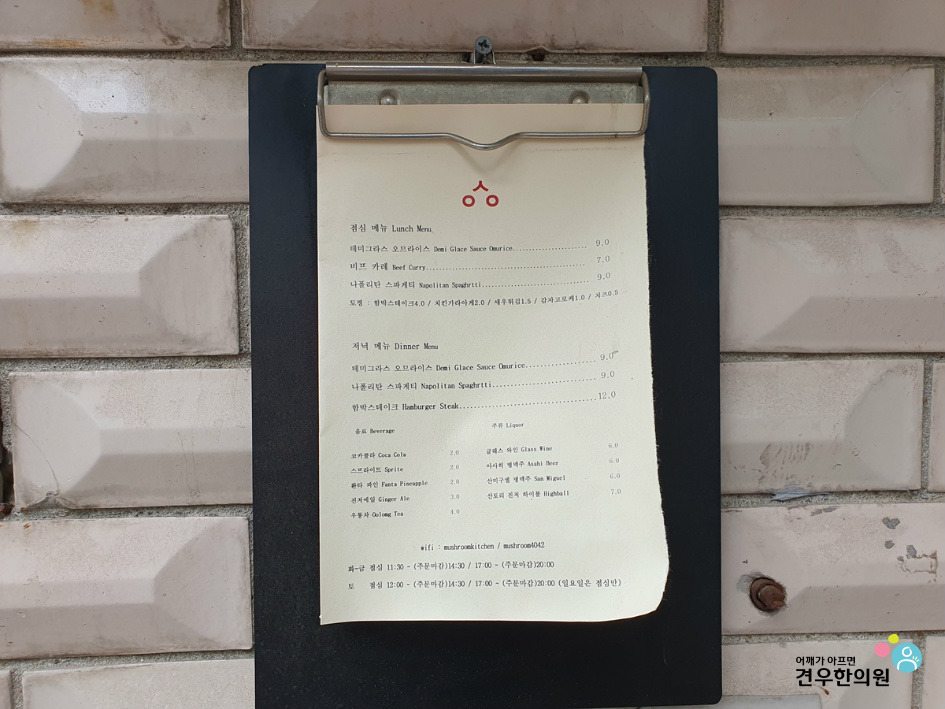 점심 메뉴 Lunch Menu
데미그라스 오므라이스 Demi Glace Sauce Omurice 9.0
비프 카레 Beef Curry 7.0
나폴리탄 스파게티 Napolitan Spaghrtti 9.0
토핑 : 함박스테이크4.0 / 치킨가라아게2.0 / 새우튀김1.5 / 감자고로케1.0 / 치즈0.5
저녁 메뉴 Dinner Menu
데미그라스 오므라이스 Demi Glace Sauce Omurice 9.0
나폴리탄 스파게티 Napolitan Spaghrtti 9.0
함박스테이크 Hamburger Steak 12.0
음료 Beverage
코카콜라 Coca Cola 2.0
스프라이트 Sprite 2.0
환타 파인 Fanta Pineapple 2.0
진저에일 Ginger Ale 3.0
우롱차 Oolong Tea 4.0
주류 Liquor
글래스 와인 Glass Wine 6.0
아사히 병맥주 Asahi Beer 6.0
산미구엘 병맥주 San Miguel 6.0
산토리 진저 하이볼 Highball 7.0
wifi : mushroomkitchen / mushroom4042
화-금 점심 11:30 - (주문마감)14:30 / 17:00 - (주문마감)20:00
토 점심 12:00 - (주문마감)14:30 / 17:00 - (주문마감)20:00 (일요일은 점심만)
어깨가 아프면
견우한의원